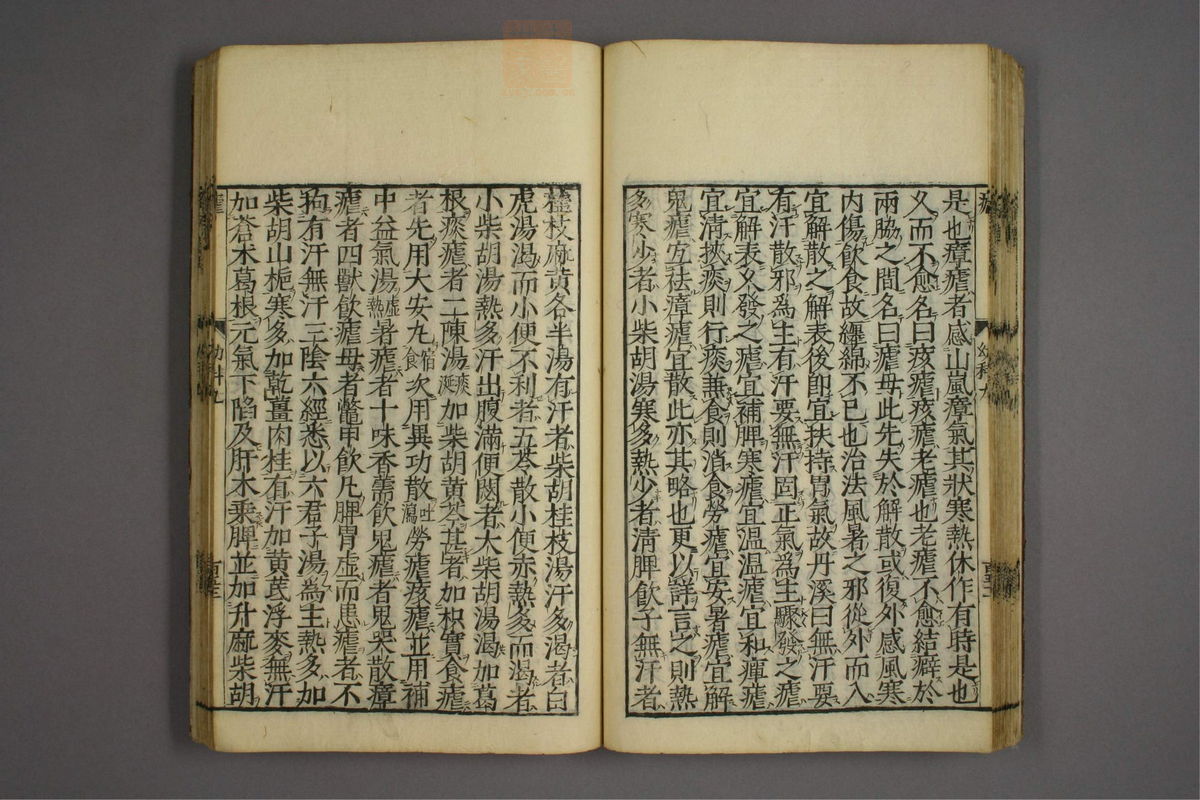 是也瘴瘧者感山嵐瘴氣其狀寒熱休作有時是也
久而不愈名曰痎瘧痎瘧老瘧也老瘧不愈結癖於
兩脇之間名曰瘧母此先失於解散或復外感風寒
內傷飲食故纏綿不已也治法風暑之邪從外而入
宜解散之解表後即宜扶持胃氣故丹溪曰無汗要
有汗散邪為主有汗要無汗固正氣為主驟發之瘧
宜解表久發之瘧宜補脾寒瘧宜溫溫瘧宜和癉瘧
宜清挾痰則行痰兼食則消食勞瘧宜安暑瘧宜解
鬼瘧宜祛瘴瘧宜散此亦其略也更以詳言之則熱
多寒少者小柴胡湯寒多熱少者清脾飲子無汗者
桂枝麻黃各半湯有汗者柴胡桂枝湯汗多渴者白
虎湯渴而小便不利者五苓散小便赤熱多而渴者
小柴胡湯熱多汗出腹滿便閟者大柴胡湯渴加葛
根痰瘧者二陳湯痰涎加柴胡黃芩甚者加枳實食瘧
者先用大安丸宿食次用異功散吐瀉勞瘧痎瘧並用補
中益氣湯虛熱暑瘧者十味香薷飲鬼瘧者鬼哭散瘴
瘧者四獸飲瘧母者鱉甲飲凡脾胃虛而患瘧者不
狗有汗無汗三陰六經悉以六君子湯為主熱多加
柴胡山梔寒多加乾薑肉桂有汗加黃芪浮麥無汗
加蒼朮葛根元氣下陷及肝木乘脾並加升麻柴胡
瘧
幼科九